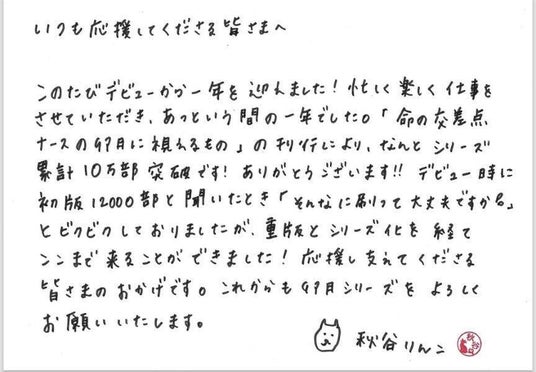 いつも応援してくださる皆さまへ
このたびデビューから一年を迎えました！忙しく楽しく仕事を
させていただき、あっという間の一年でした。「命の交差点
ナースの卯月に視えるもの」の刊行により、なんとシリーズ
累計10万部突破です！ありがとうございます!! デビュー時に
初版12000部と聞いたとき「そんなに刷って大丈夫ですか。」
とビクビクしておりましたが、重版とシリーズ化を経て
ここまで来ることができました！応援し支えてくださる
皆さまのおかげです。これからも卯月シリーズをよろしく
お願いいたします。
秋谷りんこ